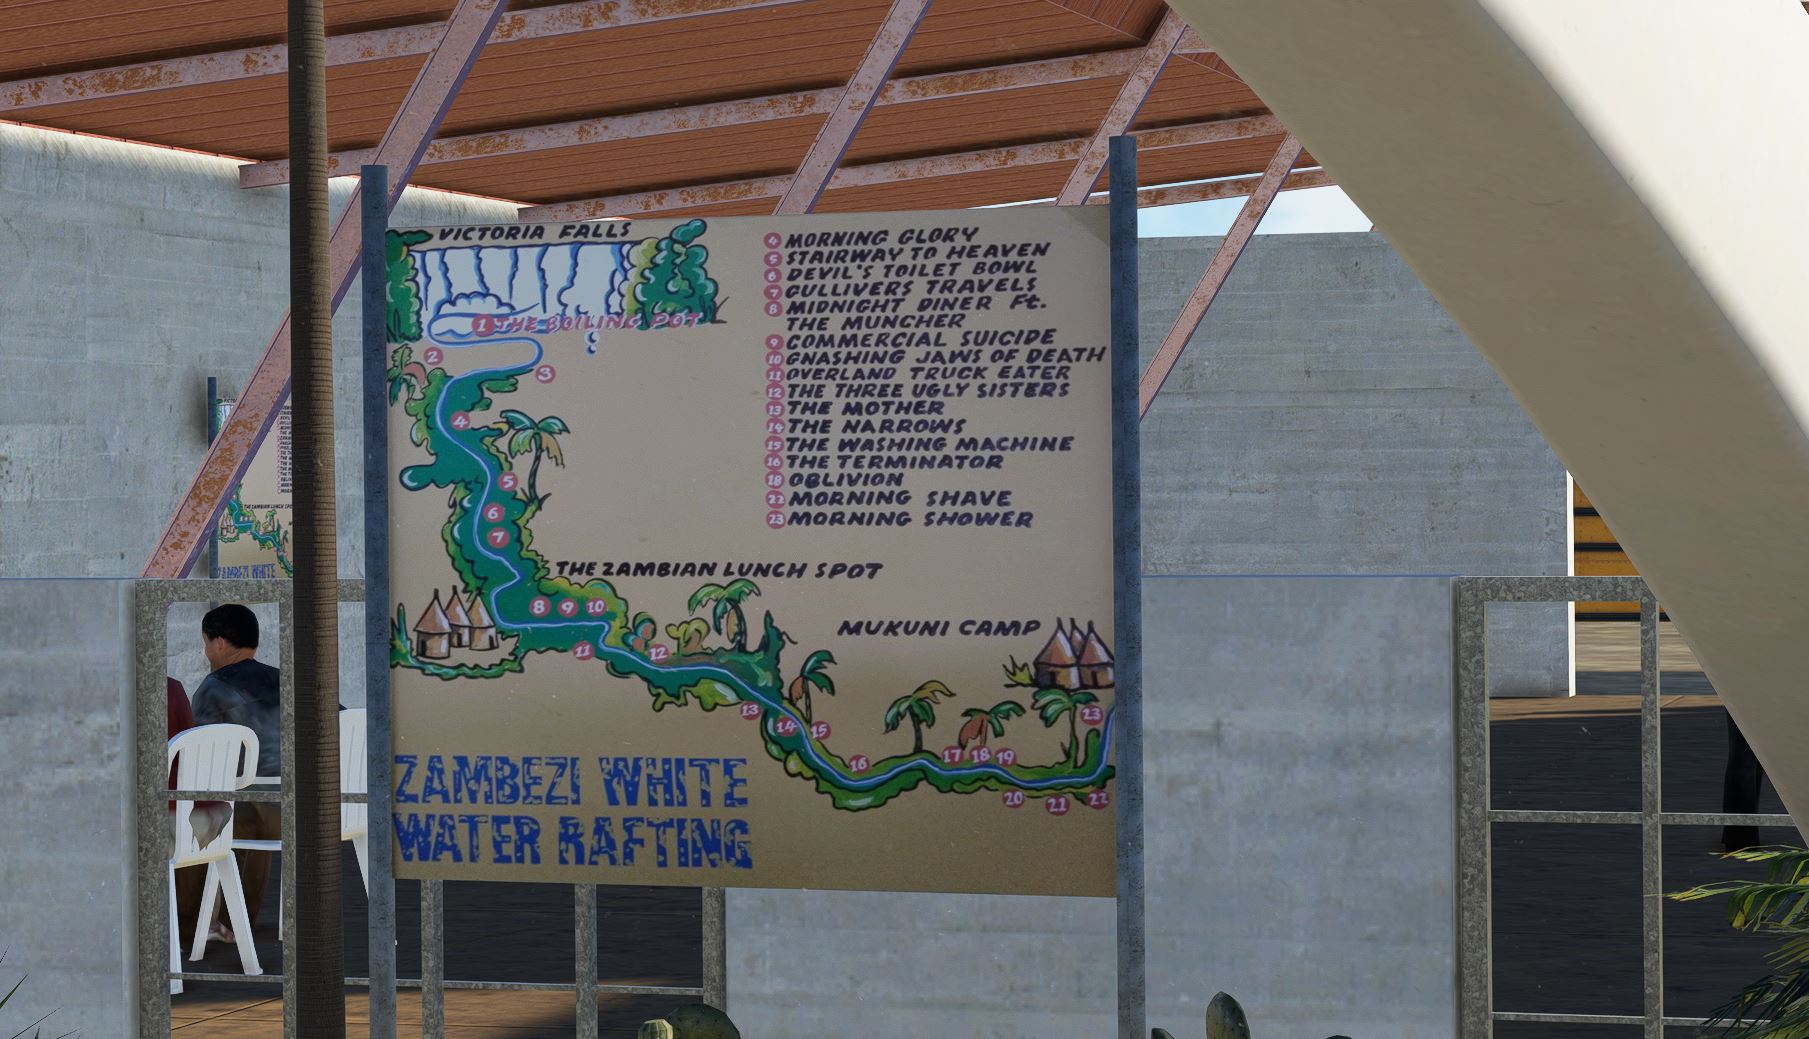 VICTORIA FALLS
1 THE BOILING POT
2
3
4
5
6
7
THE ZAMBIAN LUNCH SPOT
8 9 10
11
12
MUKUNI CAMP
13
14
15
16
17 18 19
20
21
22
23
4 MORNING GLORY
5 STAIRWAY TO HEAVEN
6 DEVIL'S TOILET BOWL
7 GULLIVERS TRAVELS
8 MIDNIGHT DINER Ft.
THE MUNCHER
9 COMMERCIAL SUICIDE
10 GNASHING JAWS OF DEATH
11 OVERLAND TRUCK EATER
12 THE THREE UGLY SISTERS
13 THE MOTHER
14 THE NARROWS
15 THE WASHING MACHINE
16 THE TERMINATOR
18 OBLIVION
22 MORNING SHAVE
23 MORNING SHOWER
ZAMBEZI WHITE
WATER RAFTING
THE ZAMBIAN LUNCH SPO
ZAMBEZI WHITE